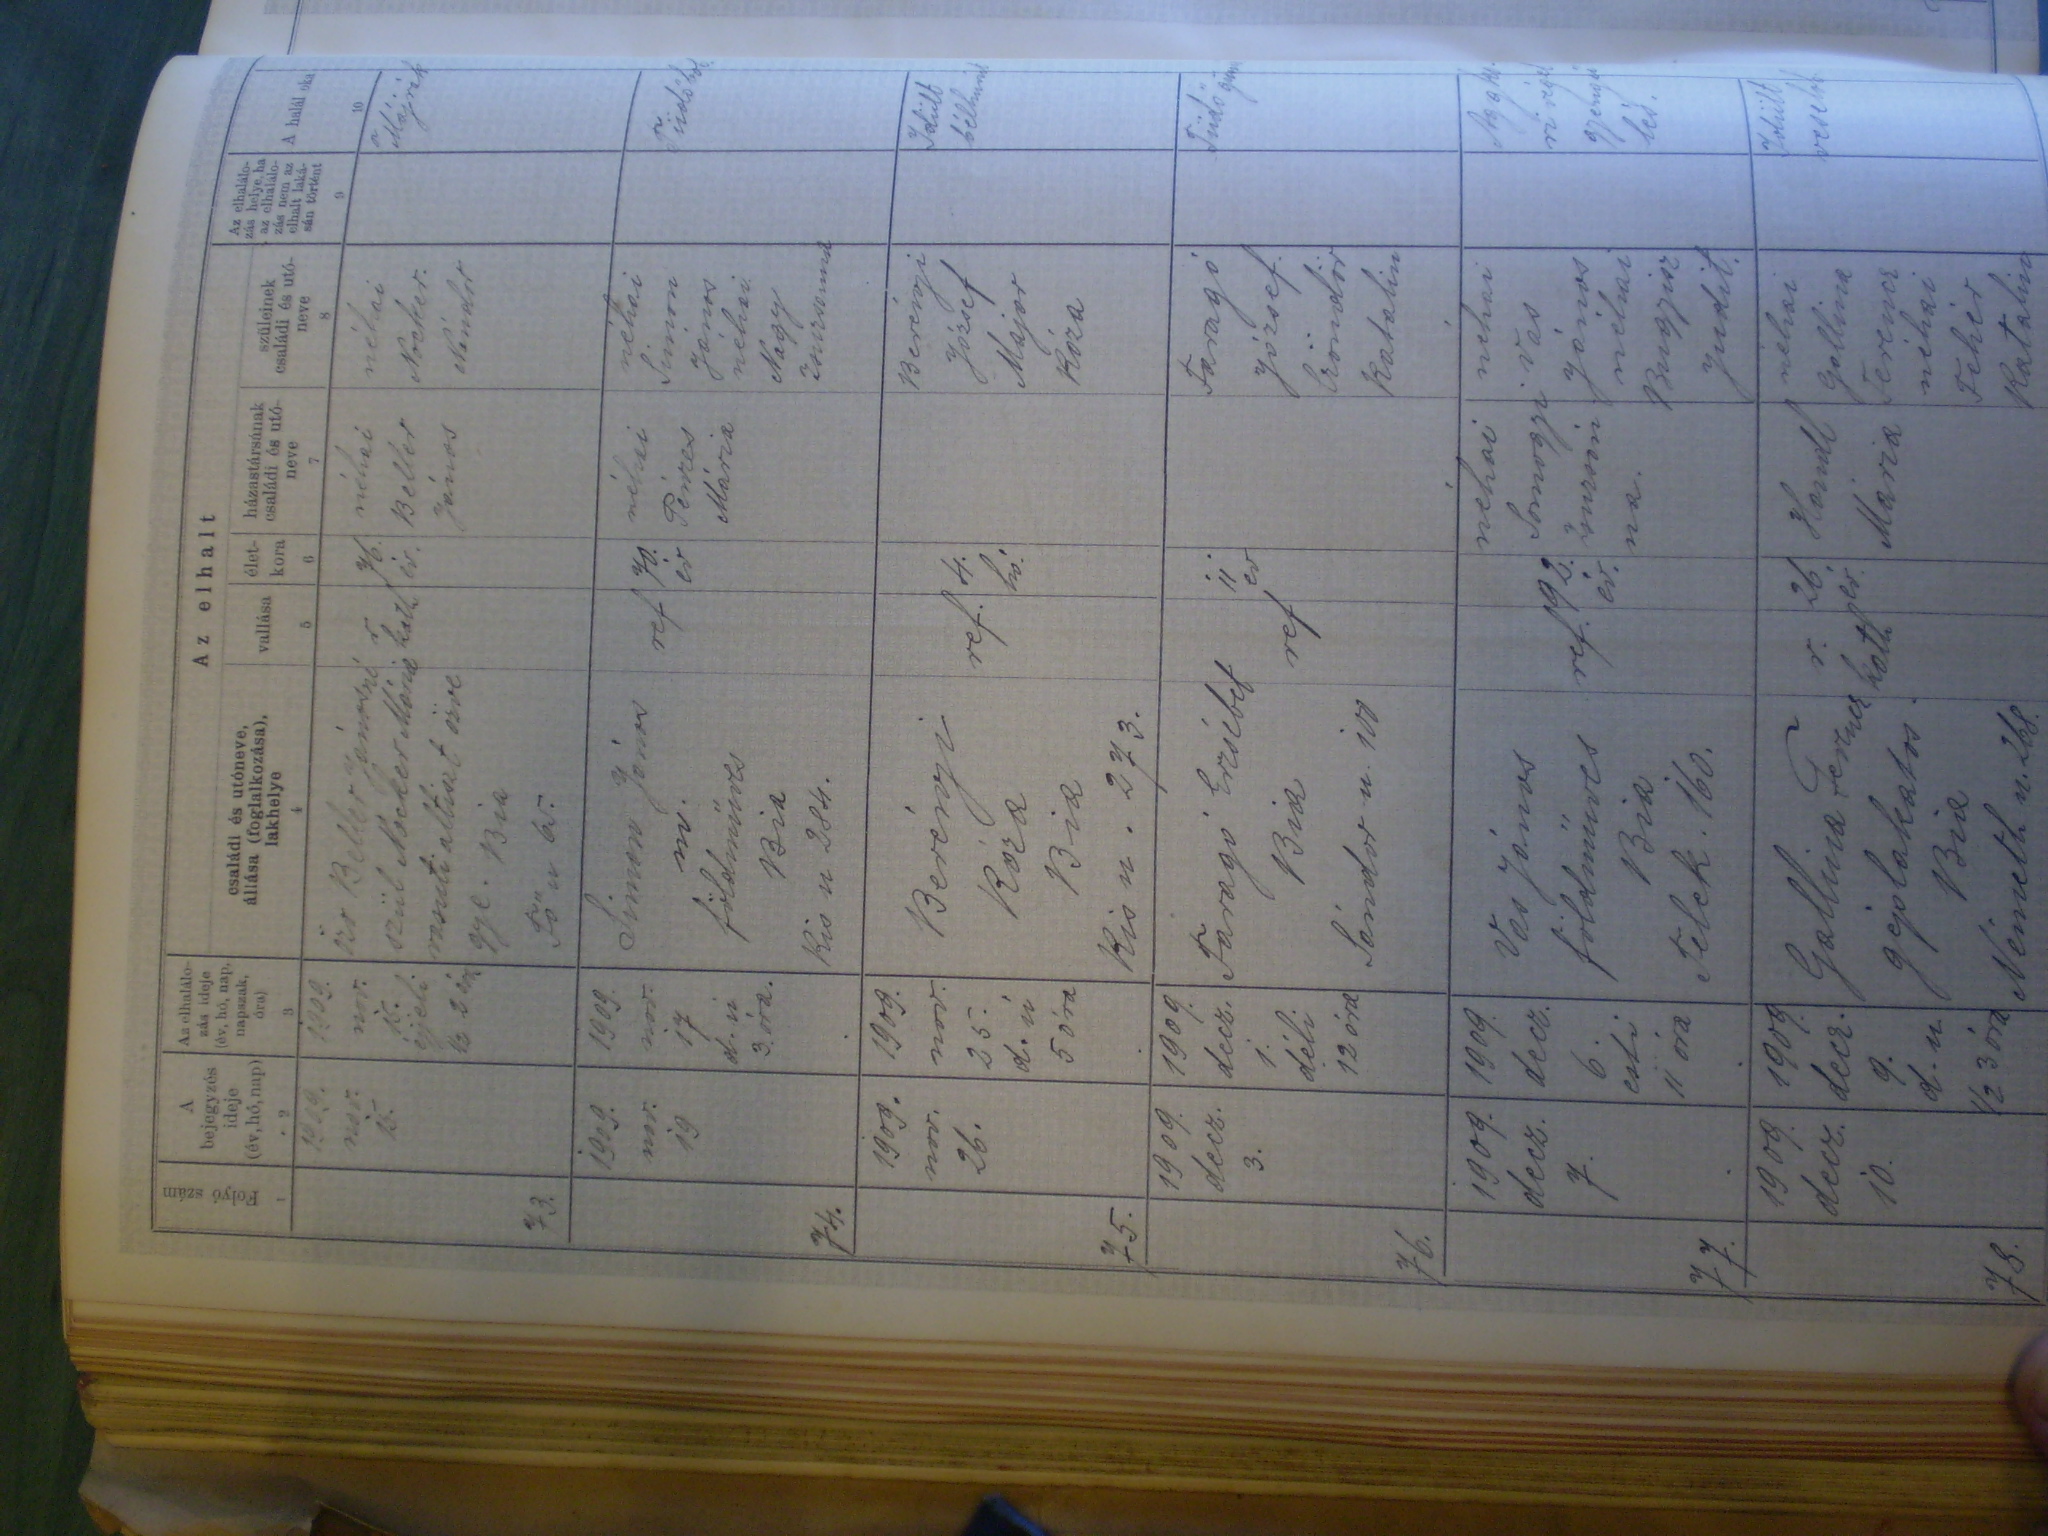 Az elhalt
Folyó szám
A bejegyzés ideje (év, hó, nap)
Az elhalálozás ideje (év, hó, nap, napszak, óra)
családi és utóneve, állása (foglalkozása), lakhelye
vallása
életkora
házastársának családi és utóneve
szüleinek családi és utóneve
Az elhalálozás helye, ha az elhalálozás nem az elhalt lakásán történt
A halál oka
1
2
3
4
5
6
7
8
9
10
73.
1909.
nov.
15.
1909.
nov.
15.
éjjeli
özv Beller Jánosné
szül Nocker Mária
gye. Bia
Fő u 65.
r
kath
76.
év.
néhai
Beller
János
néhai
Nocker
Nándor
Májrák
74.
1909.
nov.
19
1909.
nov.
17
d. u
3 óra.
Simon János
földmüves
Bia
Kis u 284.
ref
70.
év
néhai
Péntes
Mária
néhai
Simon
János
néhai
Nagy
Zsuzsanna
75.
1909.
nov.
26.
1909.
nov.
25.
d. u
5 óra
Berényi
Róza
Bia
Kis u. 273.
ref.
4.
hó.
Berényi
József
Major
Róza
Idült
bélhurut
76.
1909.
decz.
3.
1909.
decz.
1.
déli
12 óra
Faragó Erzsébet
Bia
Sándor u. 100
ref
11
év
Faragó
József
Katalin
77.
1909.
decz.
7.
1909.
decz.
6.
esti
11 óra
Vas János
földmüves
Bia
Telek. 160.
ref.
92.
év.
néhai
Somogyi
Zsuzsán
na.
néhai
Vas
János
néhai
Judit.
78.
1909.
decz.
10.
1909.
decz.
9.
d. u
1/2 3 óra
Gallina Ferencz
géplakatos.
Bia
Németh u. 268.
r.
kath
26
év.
Handl
Mária
néhai
Gallina
Ferencz
néhai
Fehér
Katalin
Idült